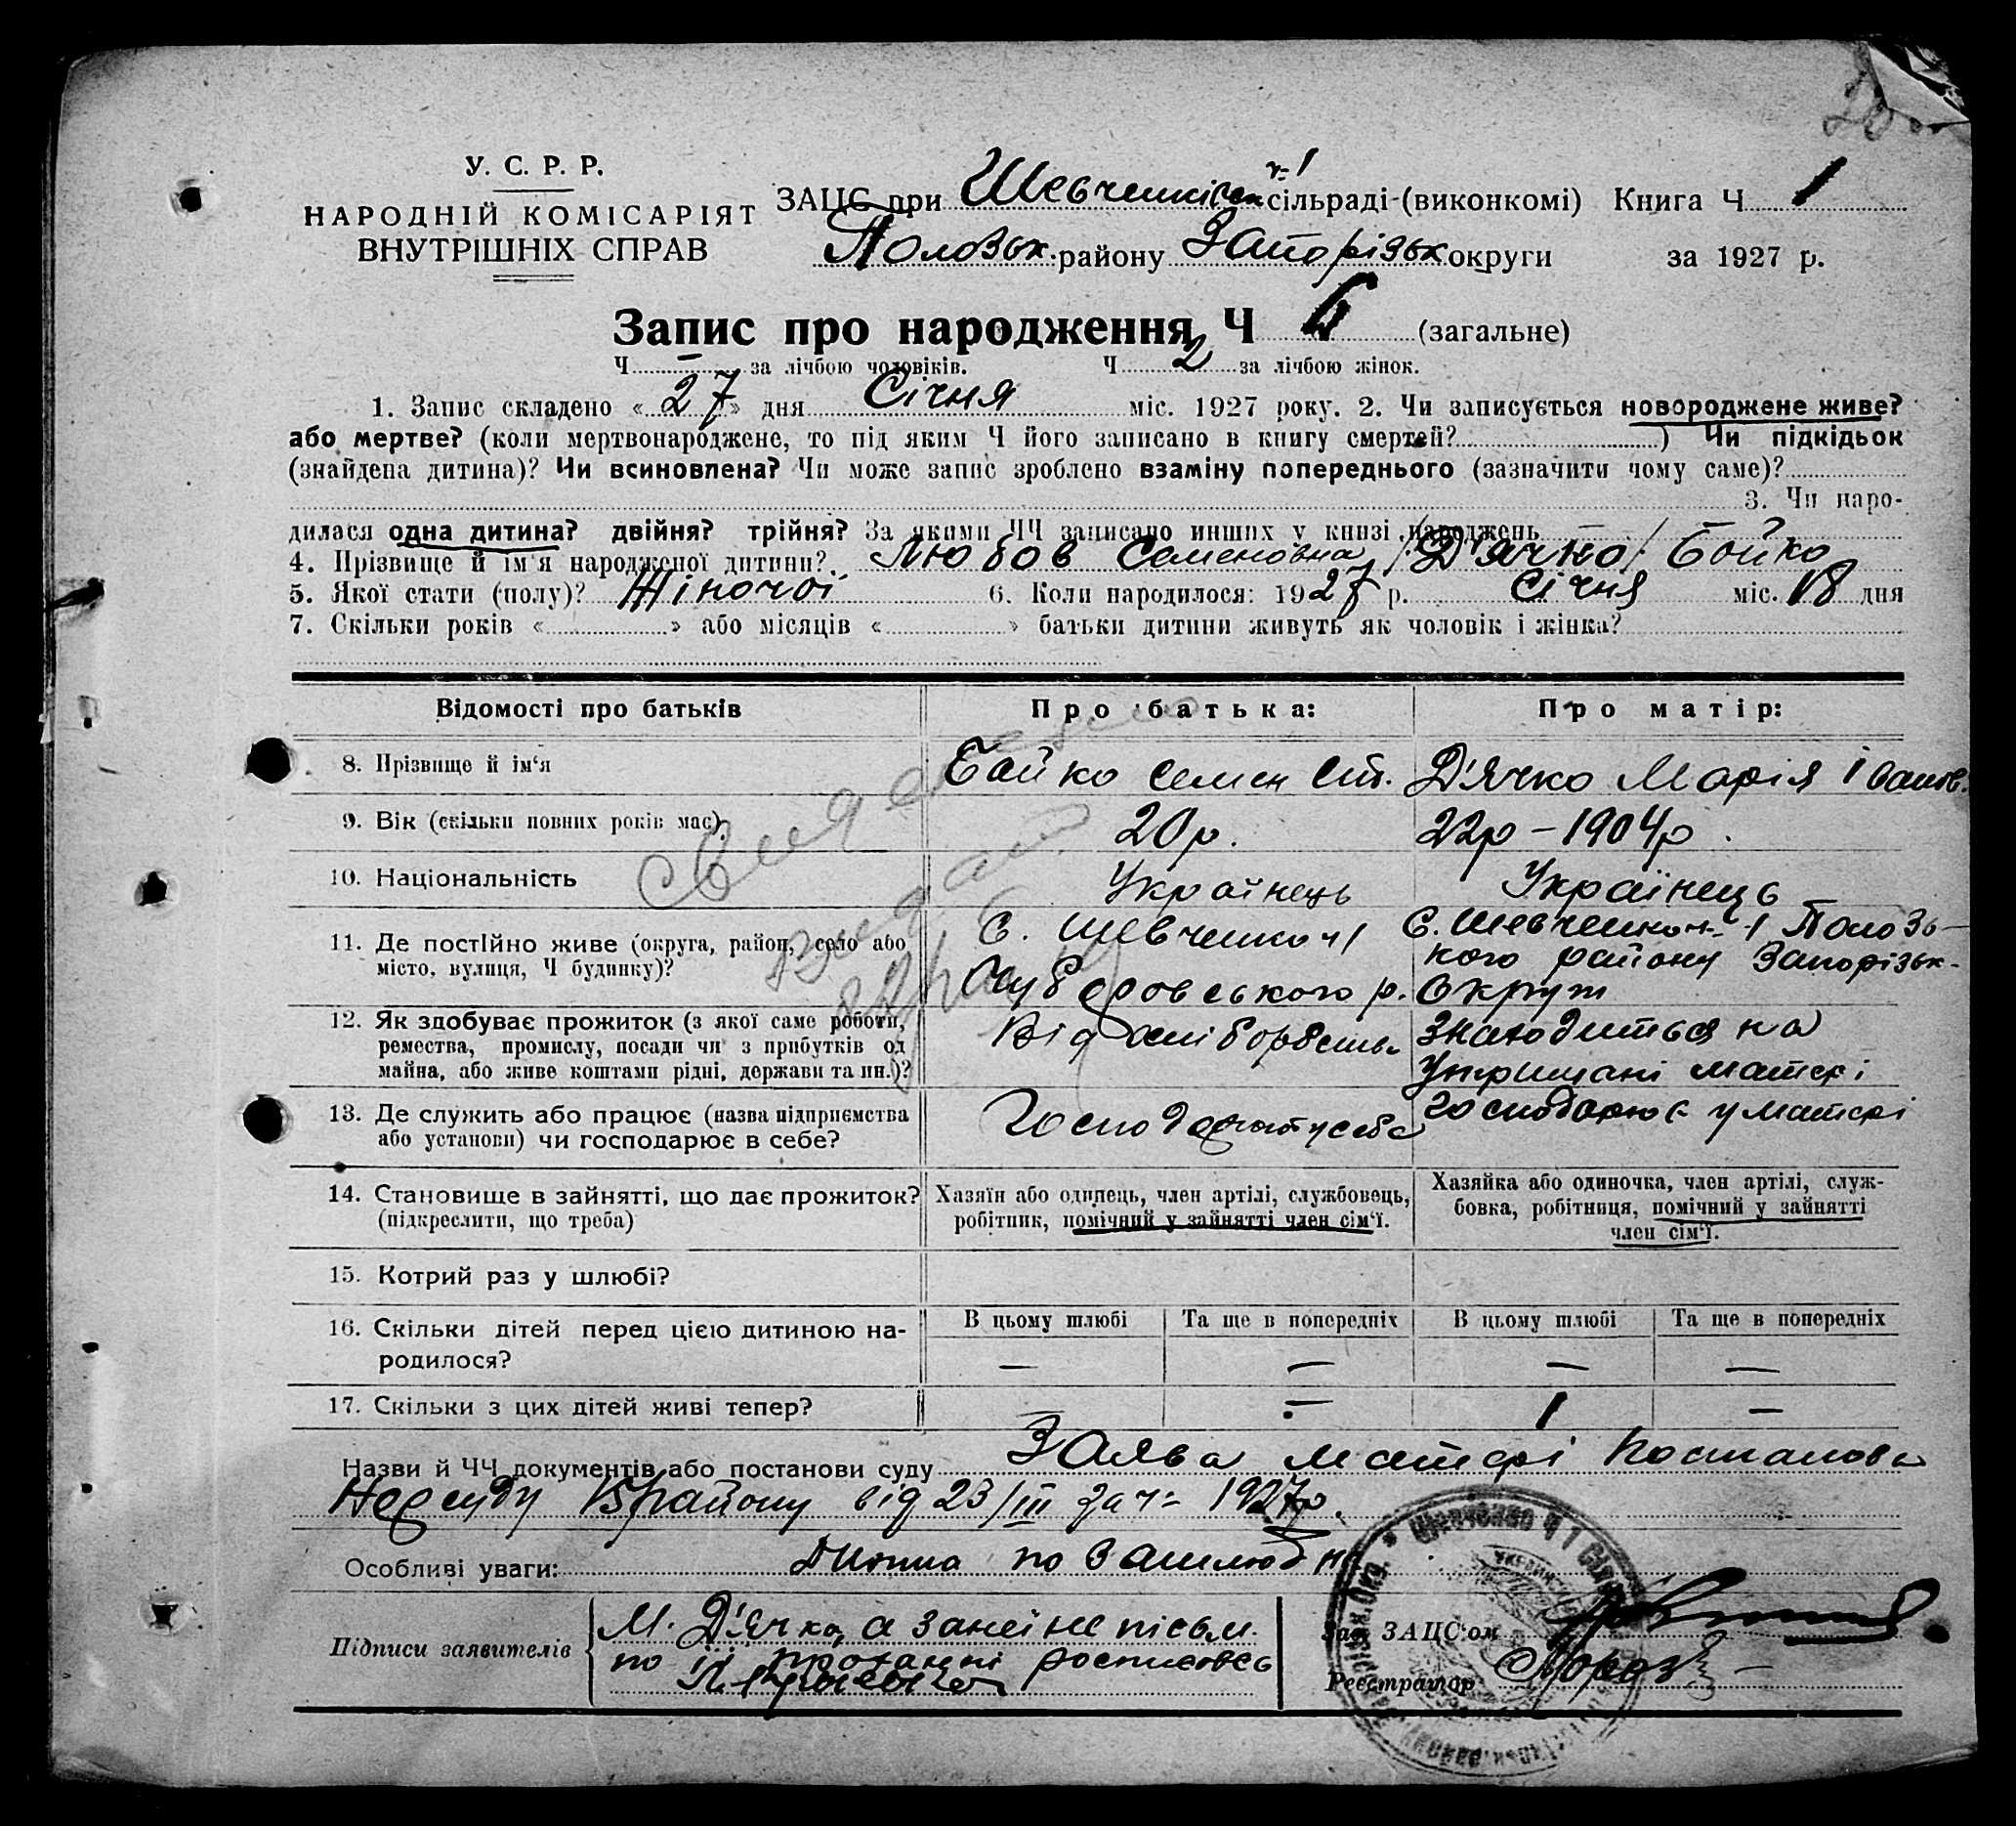 У. С. Р. Р.
НАРОДНІЙ КОМІСАРІЯТ
ВНУТРІШНІХ СПРАВ
ЗАЦС при Шевченківськ ч. 1 сільраді-(виконкомі) Книга Ч. 1
Пологівськ. району Запорізьк округи за 1927 р.
Запис про народження, Ч 6 (загальне)
Ч. — за лічбою чоловіків. Ч. 2 за лічбою жінок.
1. Запис складено « 27 » дня Січня міс. 1927 року. 2. Чи записується новороджене живе?
або мертве? (коли мертвонароджене, то під яким Ч його записано в книгу смертей? ) Чи підкідьок
(знайдена дитина)? Чи всиновлена? Чи може запис зроблено взаміну попереднього (зазначити чому саме)?
3. Чи наро-
дилася одна дитина? двійня? трійня? За якими ЧЧ записано инших у книзі народжень —
4. Прізвище й ім'я народженої дитини? Любов Семеновна /Д'ячко/ Бойко
5. Якої стати (полу)? Жіночої 6. Коли народилося: 1927 р. Січня міс. 18 дня
7. Скільки років « » або місяців « » батьки дитини живуть як чоловік і жінка?
Відомості про батьків Про батька: Про матір:
8. Прізвище й ім'я Бойко Семен Ст. Д'ячко Марія Іванов.
9. Вік (скільки повних років має). 20р. 22р – 1904р.
10. Національність Українець Українець
11. Де постійно живе (округа, район, село або
місто, вулиця, Ч будинку)?
С. Шевченко ч 1
Чубаровського р.
С. Шевченко ч. 1 Пологівь-
кого району Запорізьк-
Округи
12. Як здобуває прожиток (з якої саме роботи,
ремества, промислу, посади чи з прибутків од
майна, або живе коштами рідні, держави та ин.)?
Від хліборобства
Знаходиться на
Утриманні матері
13. Де служить або працює (назва підприємства
або установи) чи господарює в себе?
Господарює у себе
господарює у матері
14. Становище в зайнятті, що дає прожиток?
(підкреслити, що треба)
Хазяїн або одинець, член артілі, службовець,
робітник, помічний у зайнятті член сім'ї.
Хазяйка або одиночка, член артілі, служ-
бовка, робітниця, помічний у зайнятті
член сім'ї.
15. Котрий раз у шлюбі?
16. Скільки дітей перед цією дитиною на-
родилося?
В цьому шлюбі Та ще в попередніх В цьому шлюбі Та ще в попередніх
— — — —
17. Скільки з цих дітей живі тепер? — — 1 —
Назви й ЧЧ документів або постанови суду Заява матері Постанова
Нарсуду району від 23/III за ч= 1927р.
Особливі уваги: Дитина позашлюбн
Підписи заявителів
М. Д'ячко, а за неї не пісьм.
по її проханні росписовсь
Зав. ЗАЦС'ом
Реєстратор Мороз